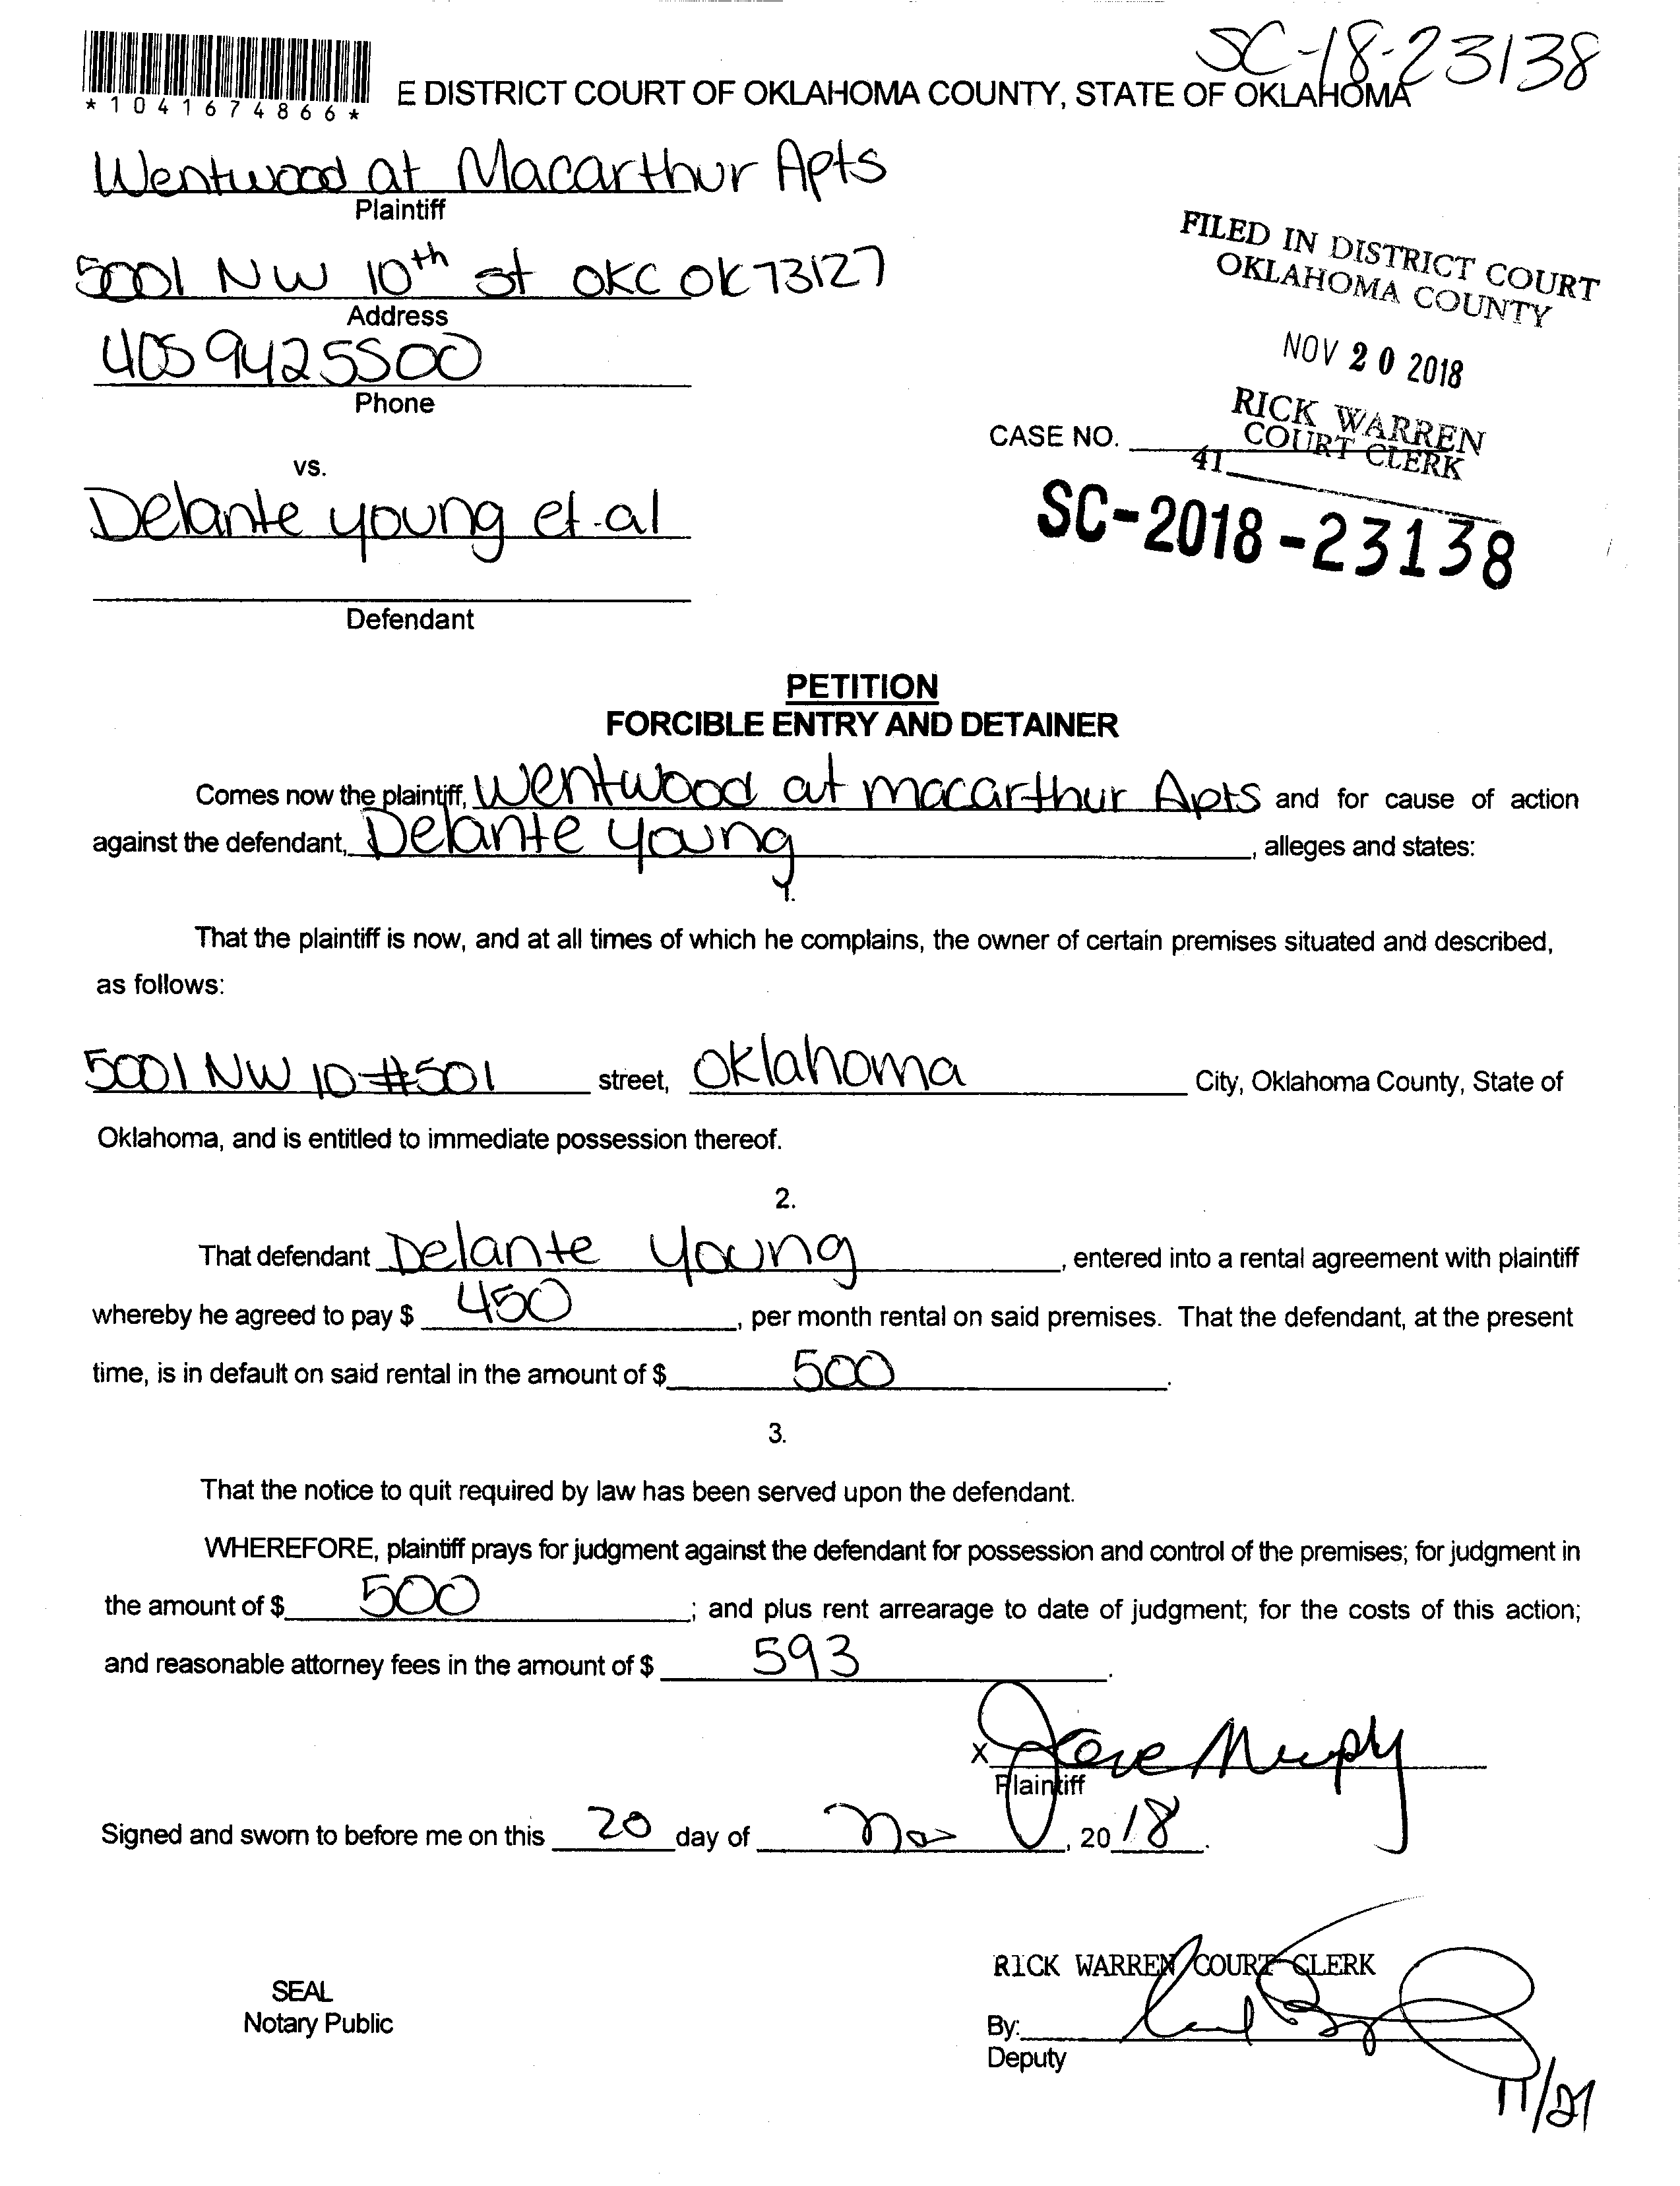 SC-18-23138
*1041674866*
E DISTRICT COURT OF OKLAHOMA COUNTY, STATE OF OKLAHOMA
Wentwood at Macarthur Apts
Plaintiff
5001 NW 10th st OKC OK 73127
Address
405 942 5500
Phone
FILED IN DISTRICT COURT
OKLAHOMA COUNTY
NOV 20 2018
RICK WARREN
COURT CLERK
41
CASE NO.
SC-2018-23138
vs.
Delante young et.al
Defendant
PETITION
FORCIBLE ENTRY AND DETAINER
Comes now the plaintiff, Wentwood at macarthur Apts and for cause of action
against the defendant, Delante Young, alleges and states:
1.
That the plaintiff is now, and at all times of which he complains, the owner of certain premises situated and described,
as follows:
5001 NW 10 #501 street, Oklahoma City, Oklahoma County, State of
Oklahoma, and is entitled to immediate possession thereof.
2.
That defendant Delante Young, entered into a rental agreement with plaintiff
whereby he agreed to pay $ 450, per month rental on said premises. That the defendant, at the present
time, is in default on said rental in the amount of $ 500.
3.
That the notice to quit required by law has been served upon the defendant.
WHEREFORE, plaintiff prays for judgment against the defendant for possession and control of the premises; for judgment in
the amount of $ 500; and plus rent arrearage to date of judgment; for the costs of this action;
and reasonable attorney fees in the amount of $ 593.
X Murphy
Plaintiff
Signed and sworn to before me on this 20 day of Nov, 2018.
RICK WARREN COURT CLERK
SEAL
Notary Public
By:
Deputy
11/21